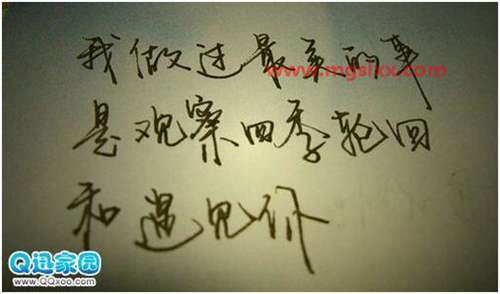 我做过最美的事
www.mgsixx.com
是观察四季轮回
和遇见你
Q迅家园
www.QQxoo.com